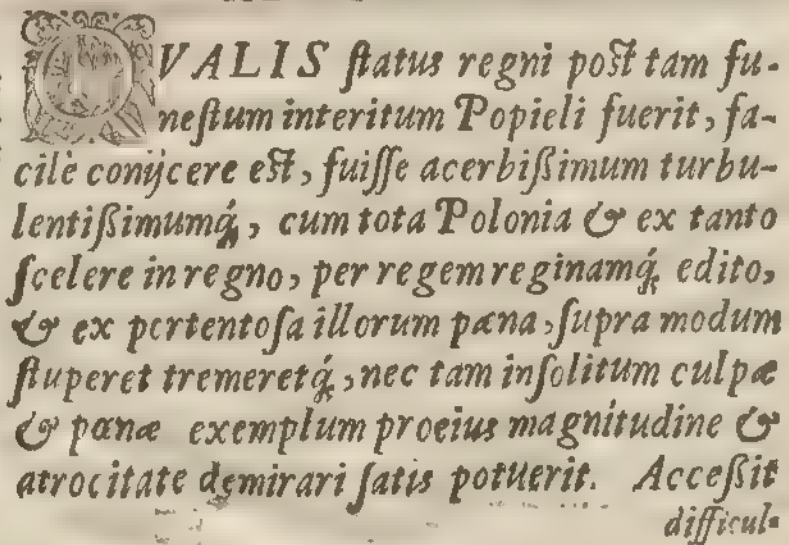 QVALIS ſtatus regni poſt tam fu-
neſtum interitum Popieli fuerit, fa-
cilè conijcere eſt, fuiſſe acerbißimum turbu-
lentißimumq́;, cum tota Polonia & ex tanto
ſcelere in regno, per regem reginamq́; edito,
& ex pertentoſa illorum pœna, ſupra modum
ſtuperet tremeretq́;, nec tam inſolitum culpæ
& pœnæ exemplum pro eius magnitudine &
atrocitate demirari ſatis potuerit. Acceßit
difficul-